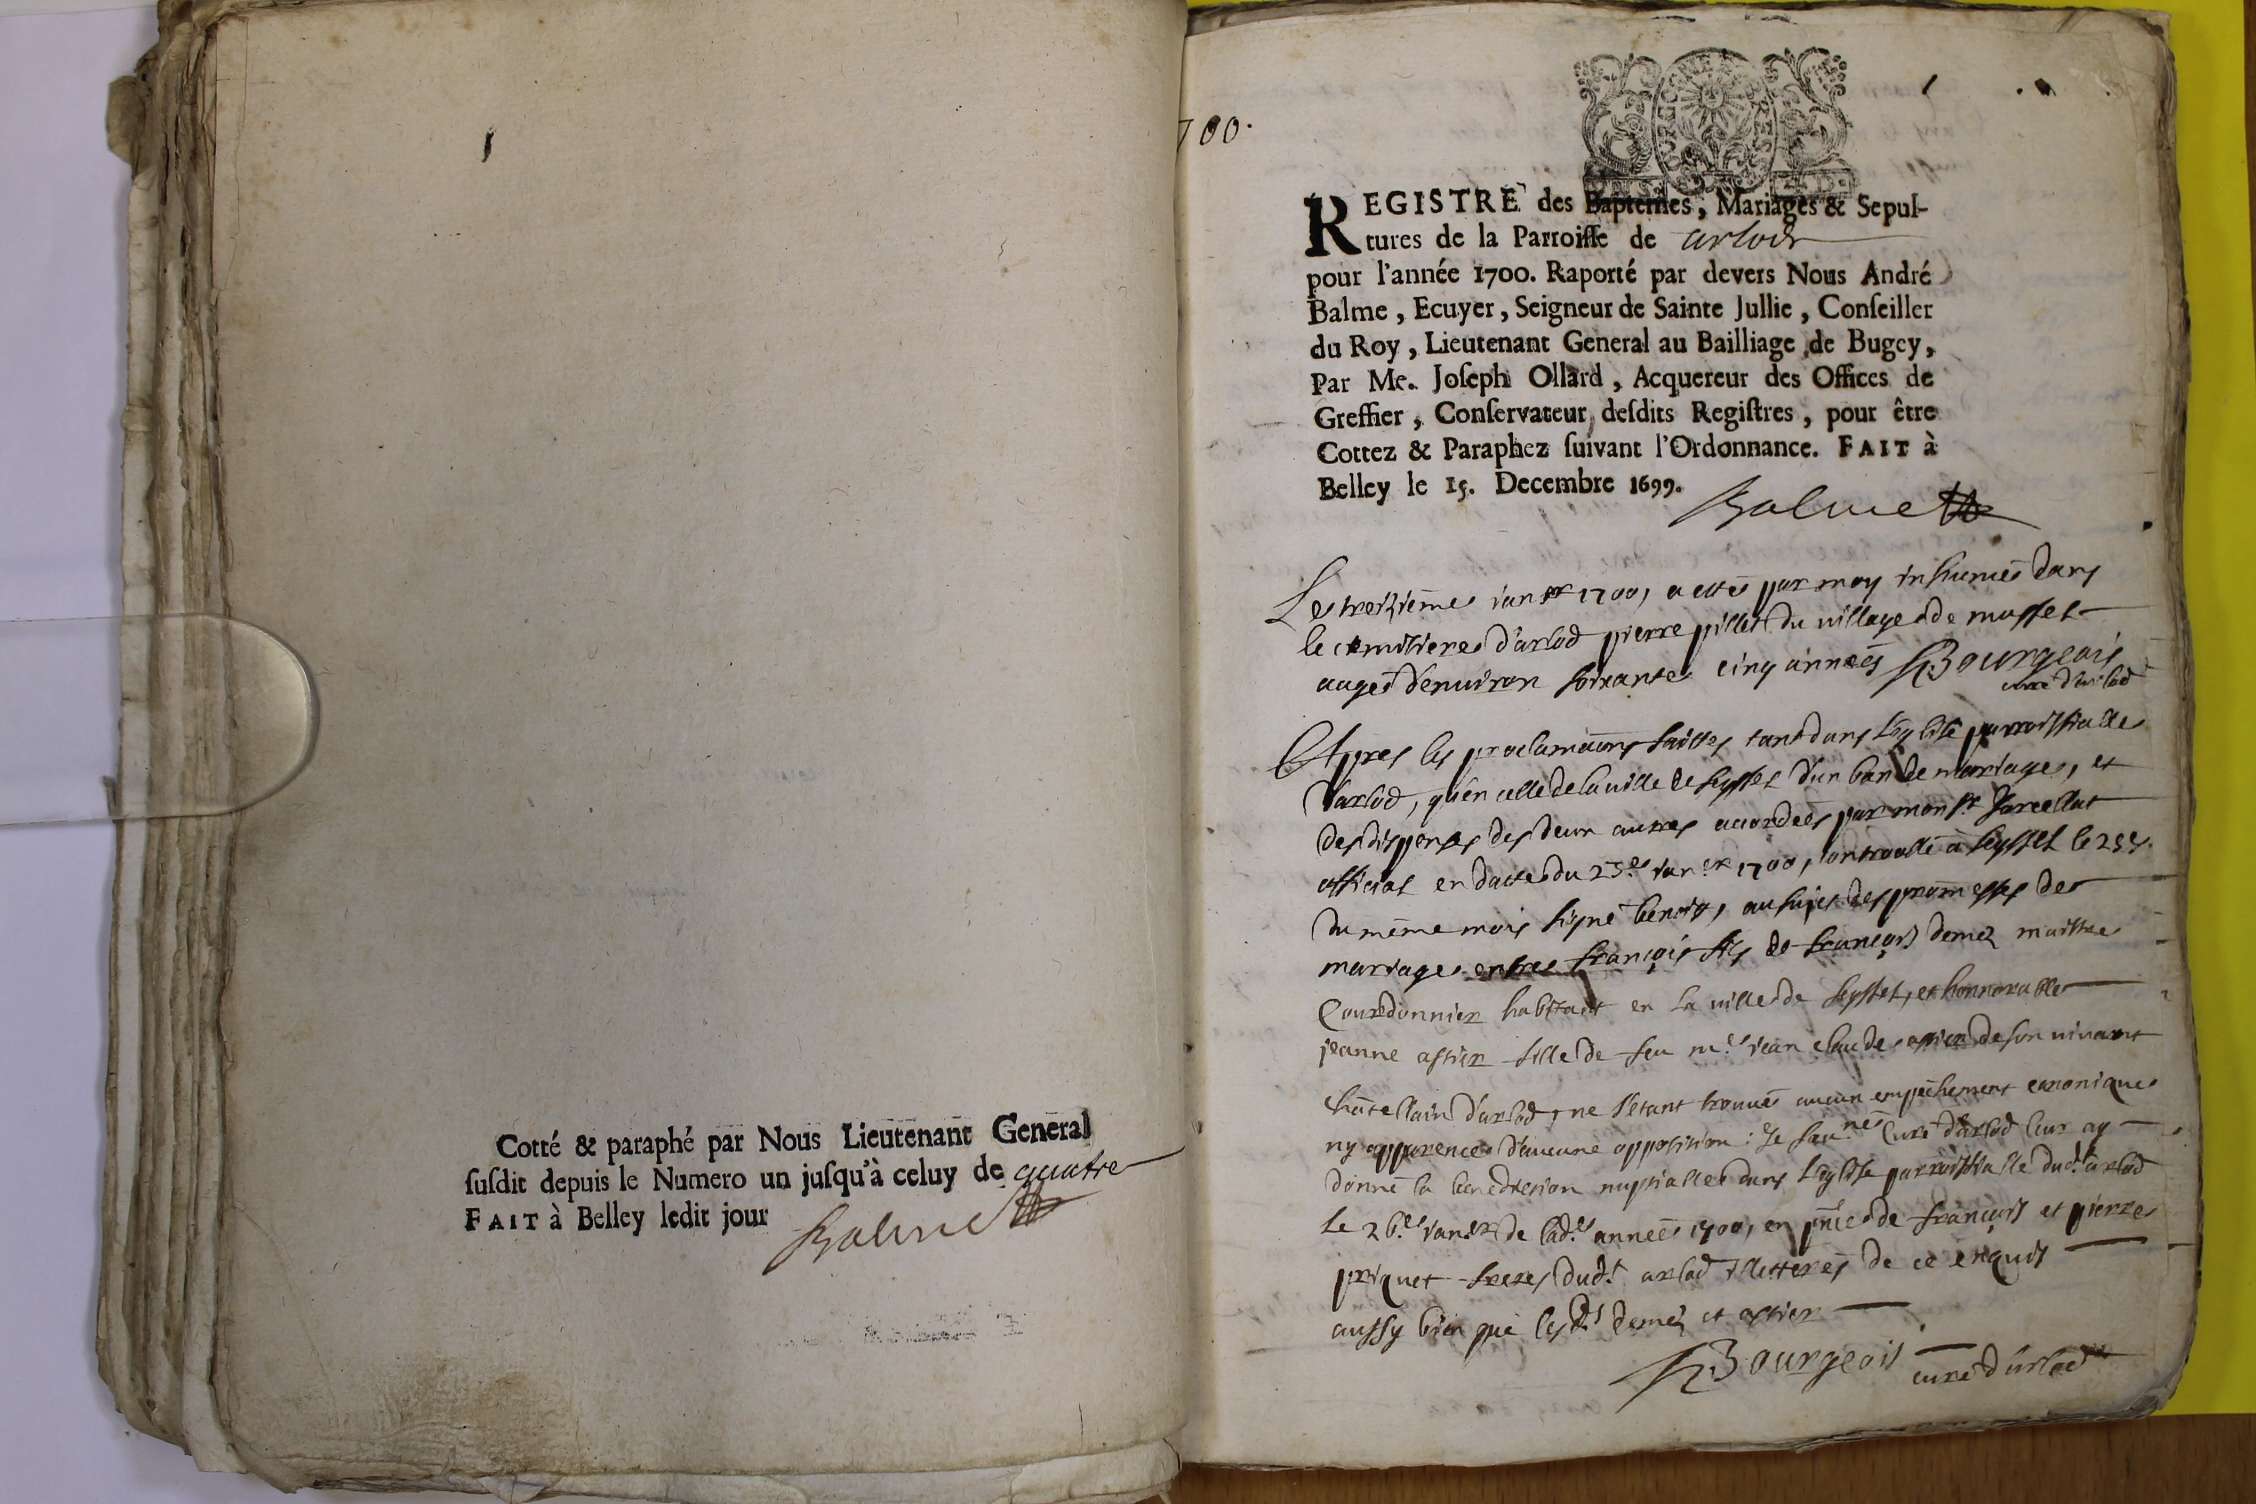 Cotté & paraphé par Nous Lieutenant General
susdit depuis le Numero un jusqu'à celuy de quatre
FAIT à Belley ledit jour
Balme
1
700.
REGISTRE des Baptemes, Mariages & Sepul-
tures de la Parroisse de arlod
pour l'année 1700. Raporté par devers Nous André
Balme, Ecuyer, Seigneur de Sainte Jullie, Conseiller
du Roy, Lieutenant General au Bailliage de Bugey,
Par Me. Joseph Ollard, Acquereur des Offices de
Greffier, Conservateur desdits Registres, pour être
Cottez & Paraphez suivant l'Ordonnance. FAIT à
Belley le 15. Decembre 1699.
Balme
Le treizième janer 1700, a etté par moy inhumé dans
le cemitiere d'arlod pierre pillet du village de musset
augé d'environ soixante cinq années Bourgeois
curé d'arlod
Apres les proclamaōns faittes tant dans l'eglise parroissialle
d'arlod, qu'en celle de la ville de seyssel d'un ban de mariage, et
des dispenses des deux autres accordées par monsr Jarcellat
official en datte du 23e janer 1700, controollé à seyssel le 25e
du même mois signé benoit, au sujet des promesses de
mariage entre françois fils de françois demez maittre
Courdonnier habitant en la ville de seyssel, et honnorable
jeanne astier fille de feu me jean claude astier de son vivant
châtellain d'arlod, ne s'étant trouvé aucun empêchement canonique
ny apparence d'aucune opposition: Je soūné Curé d'arlod leur ay
donné la benediction nuptialle dans l'eglise parroissialle dudt arlod
le 26e janer de lade année 1700, en pnce de françois et pierre
priquet freres dudt arlod illetterés de ce enquis
aussy bien que lesdts demez et astier
Bourgeois curé d'arlod